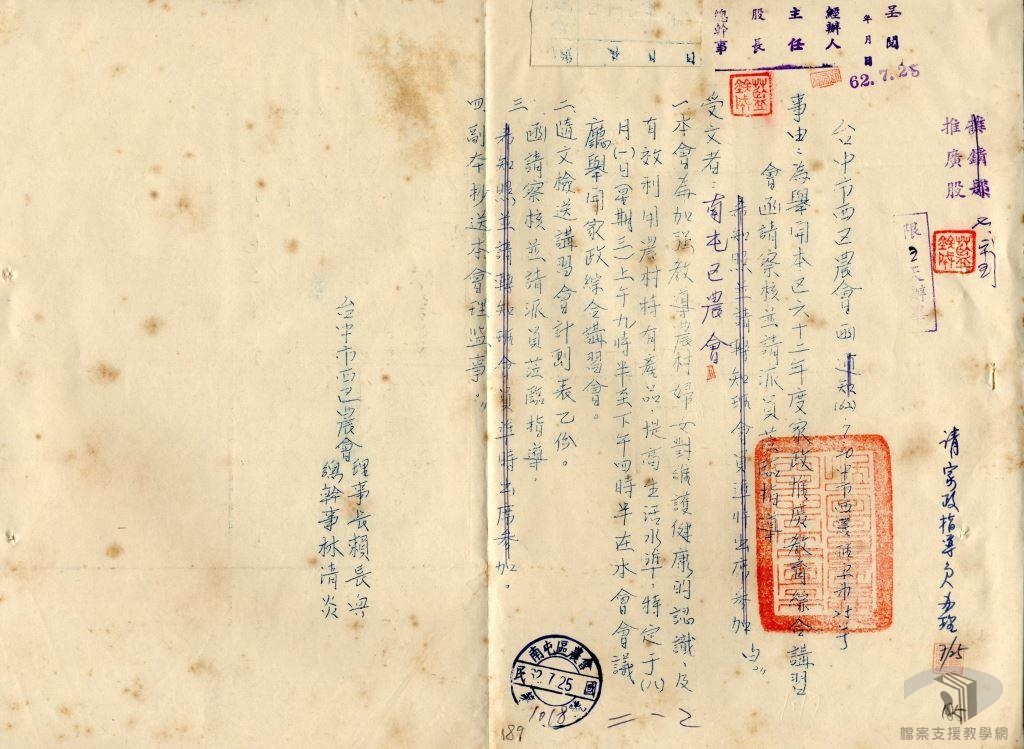 呈閱
年月日
62.7.28
經辦人
主任
股長
總幹事
推銷部
推廣股
限2天辦畢
请家政指導員办理
7/25
台中市西屯區農會函 通知
事由：為舉開本區六十二年度家政推廣教育綜合講習
會函請察核並請派員蒞臨指導
希知照並請轉知班會員準時出席參加
受文者：南屯區農會
一 本會為加强教導農村婦女對維護健康的認識，及
有效利用農村特有產品，提高生活水準，特定于(八)
月(一)日(星期三)上午九時半至下午四時半在本會會議
廳舉開家政綜合講習會。
二 隨文檢送講習會計劃表乙份。
三 函請察核並請派員蒞臨指導，
希知照並請轉知班會員準時出席參加。
四 副本抄送本會理監事。
台中市西屯區農會理事長賴長
總幹事林清炎
南屯區農會
民國
62.7.25
1018
189
檔案支援教學網